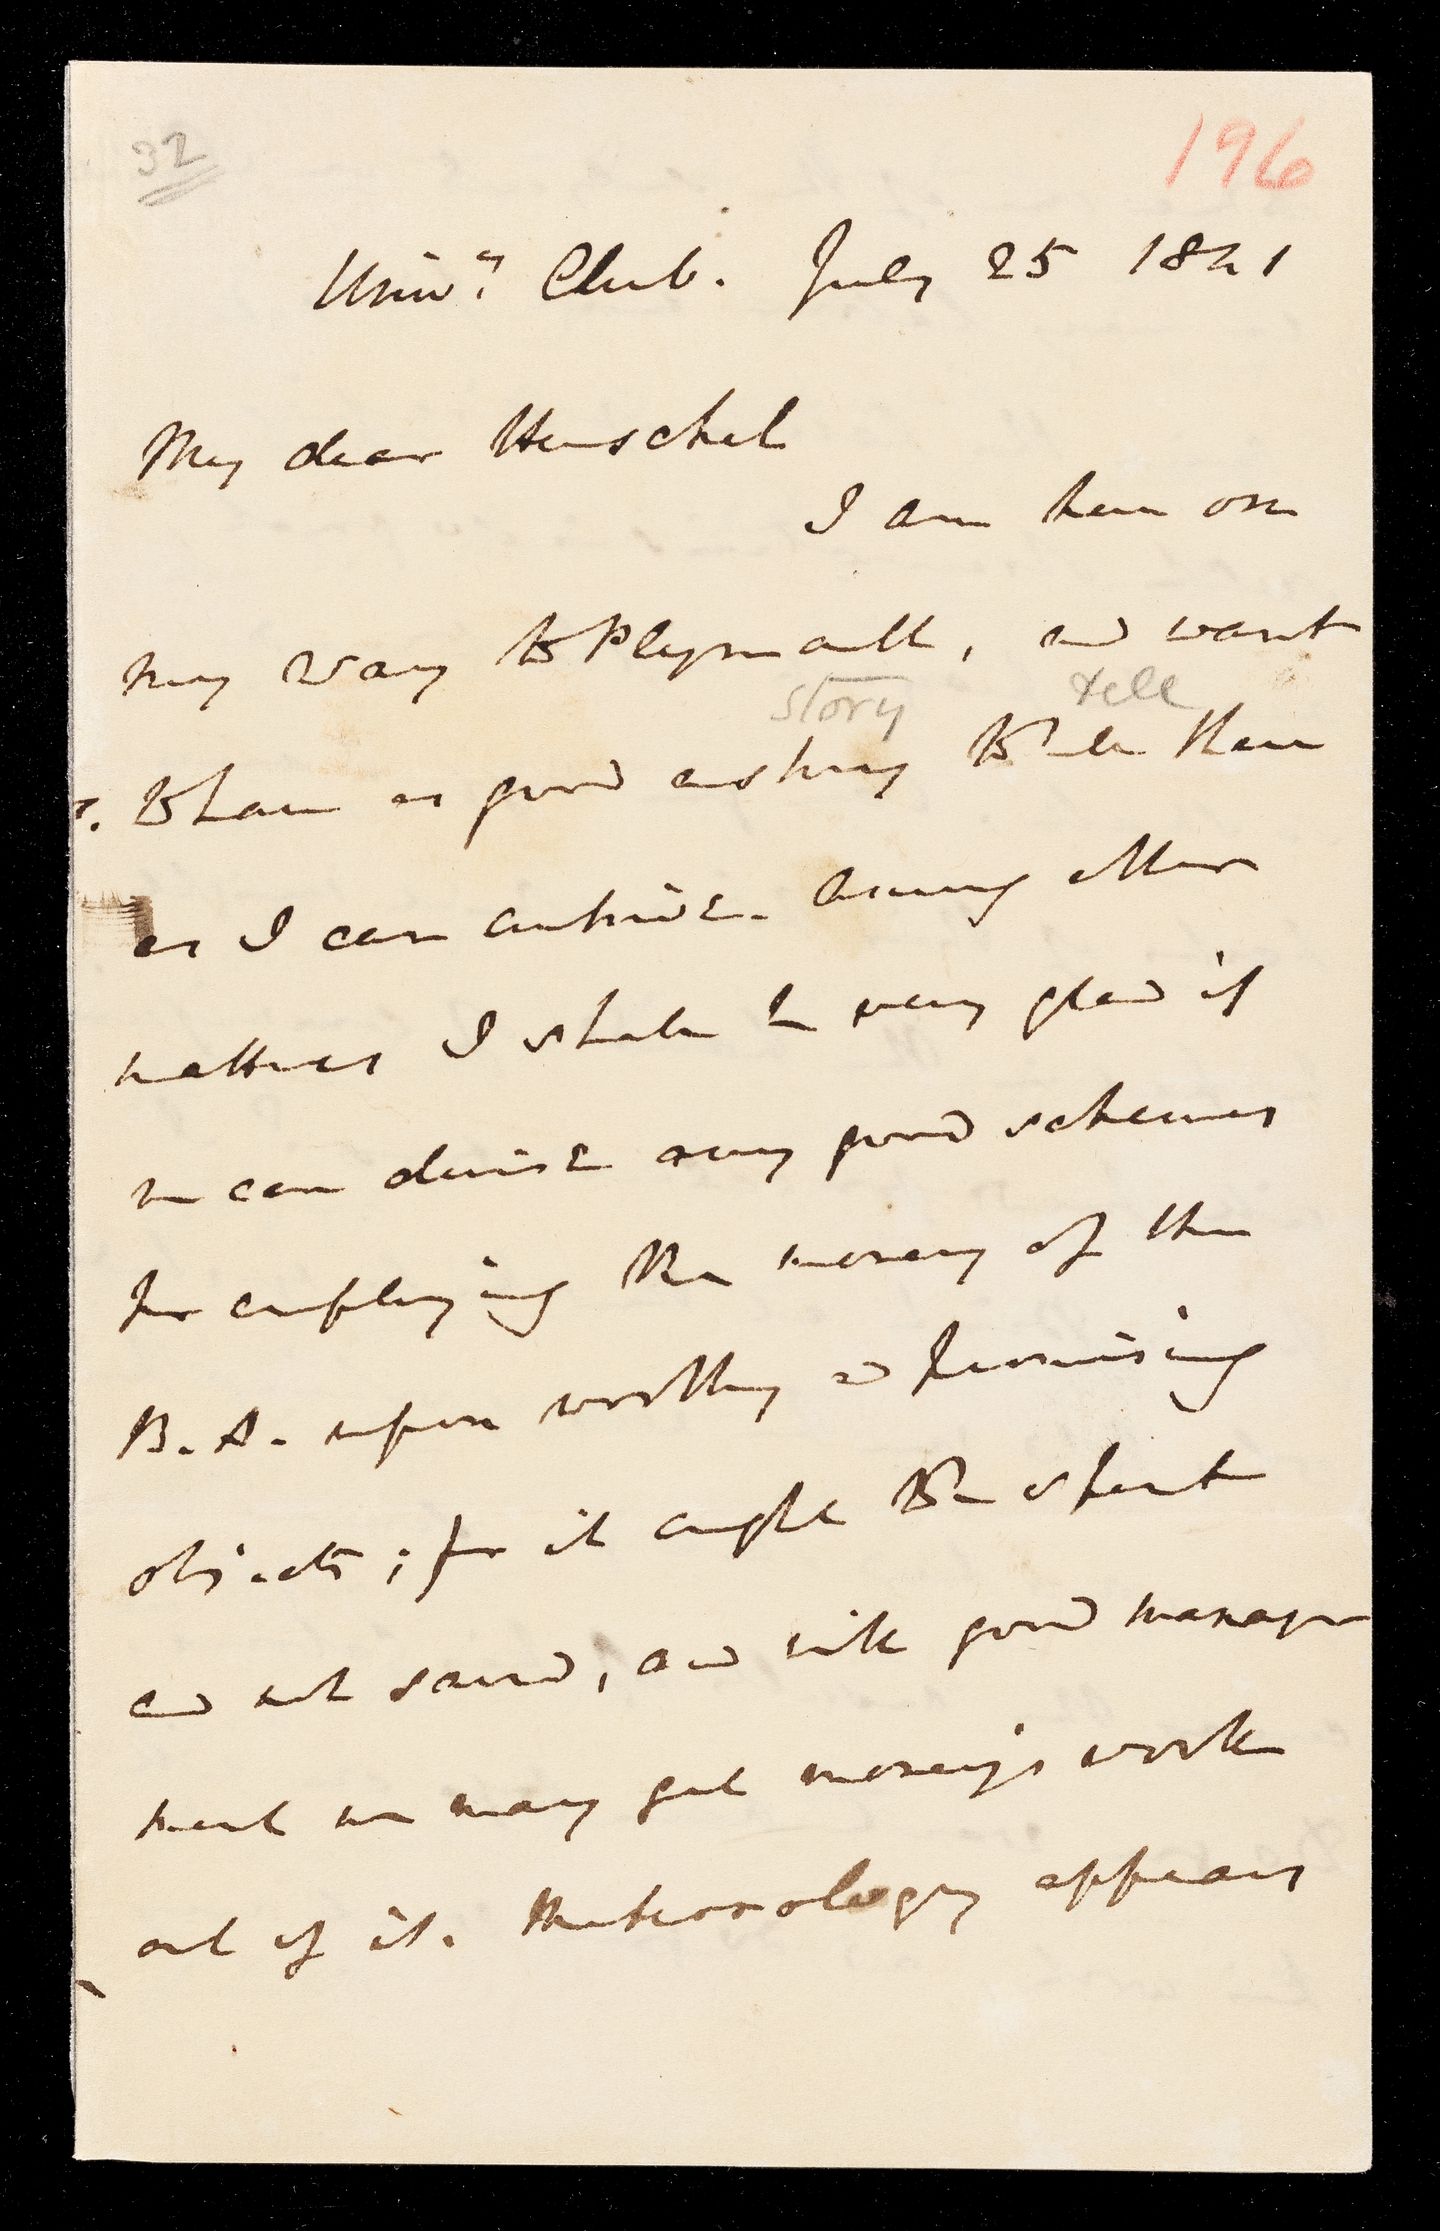 32
196
Univy. Club. July 25 1841
My dear Herschel
I am here on
my way to Plymouth, and want
story tell
to have as good a story to tell them
as I can contrive. Among other
matters I shall be very glad if
we can devise any good schemes
for employing the money of the
B. A. upon worthy and promising
objects; for it ought to be spent
and not saved, and with good manage
ment we may get money's worth
out of it. Meteorology appears